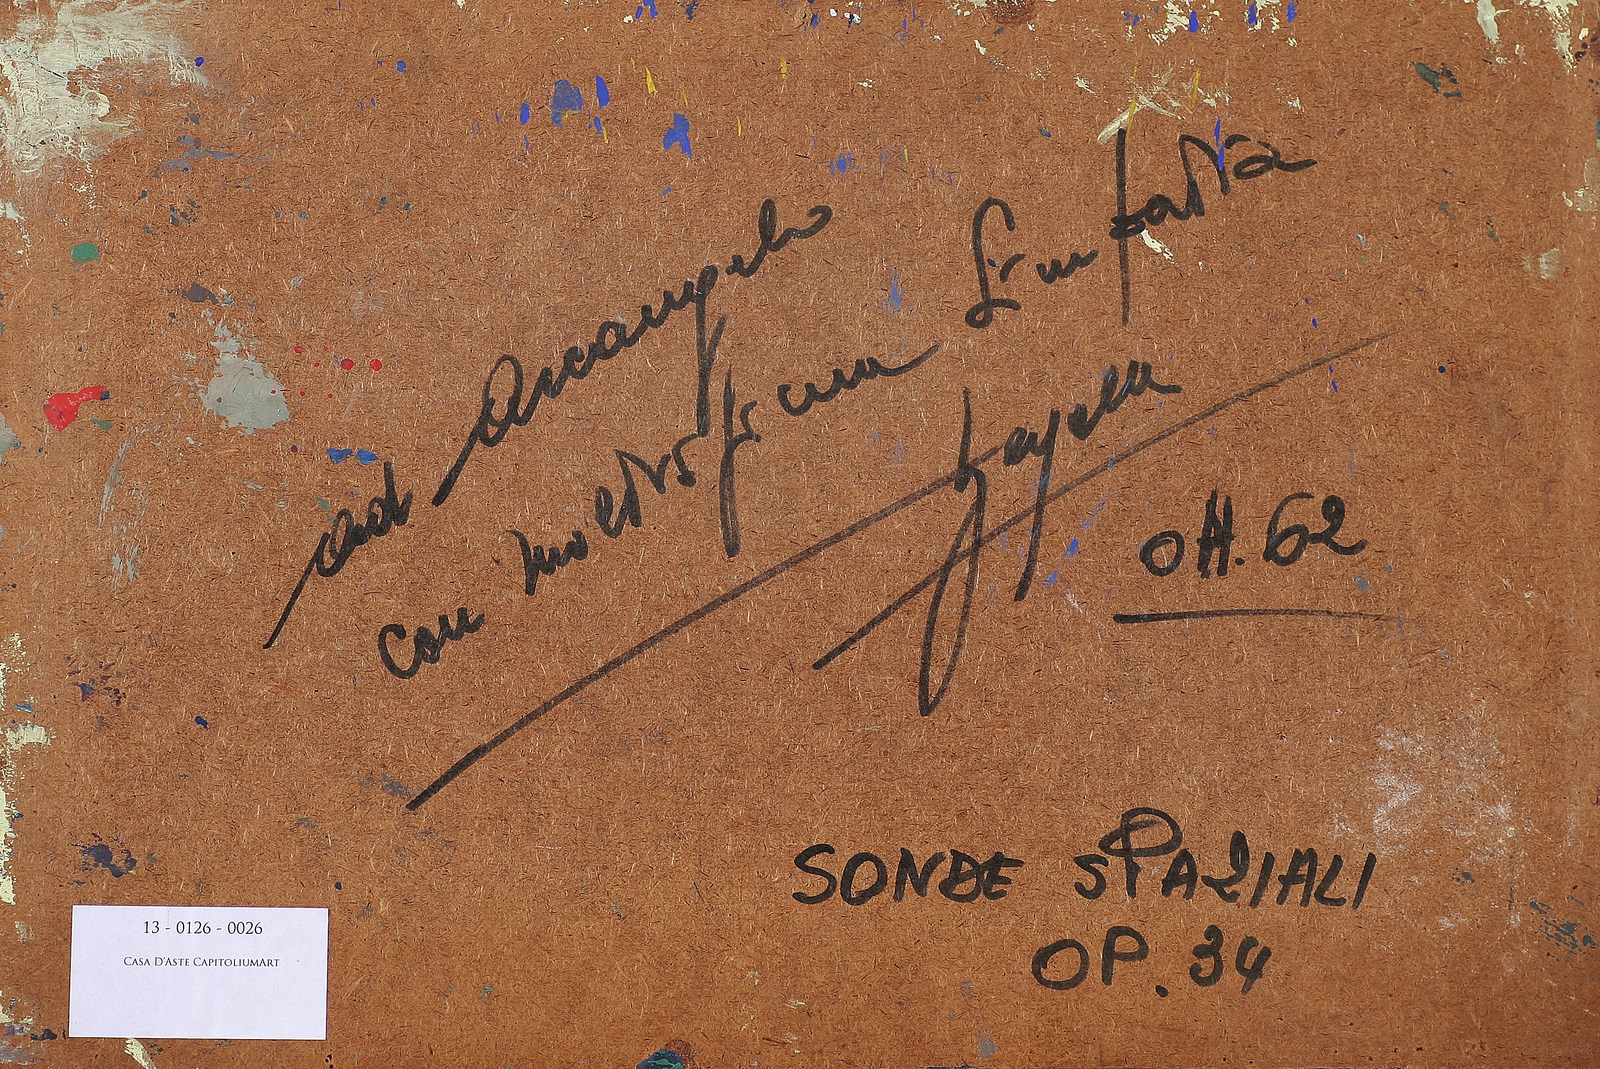 ad Arcangelo
con molta
simpatia
ott. 62
SONDE SPAZIALI
OP. 34
13 - 0126 - 0026
CASA D'ASTE CAPITOLIUMART